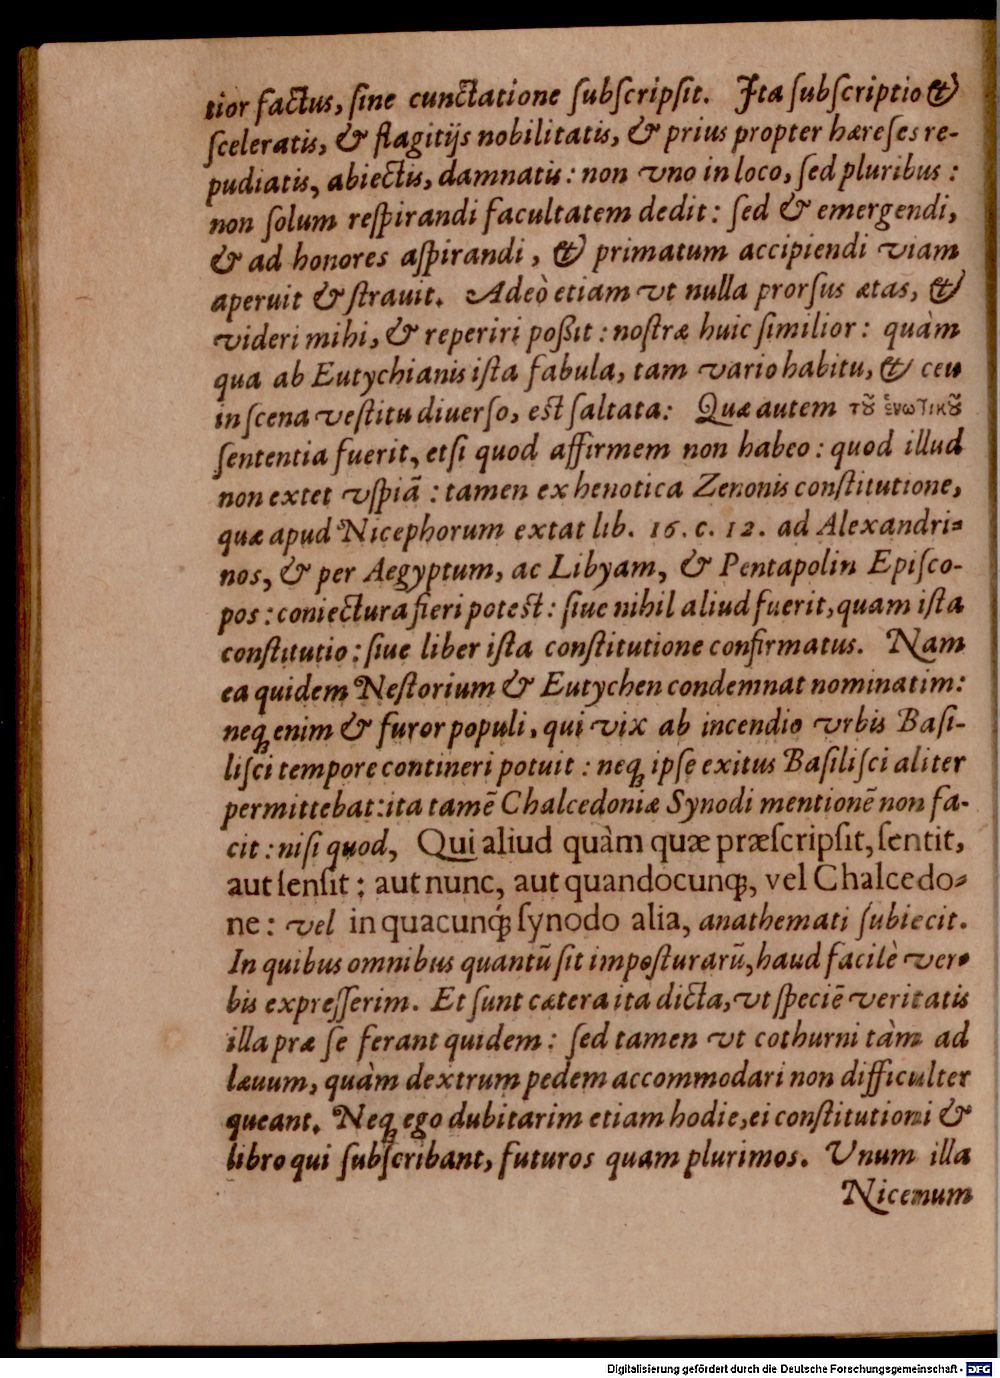 tior factus, ſine cunctatione ſubſcripſit. Ita ſubſcriptio &
ſceleratis, & flagitijs nobilitatis, & prius propter hæreſes re-
pudiatis, abiectis, damnatis: non vno in loco, ſed pluribus:
non ſolum reſpirandi facultatem dedit: ſed & emergendi,
& ad honores aſpirandi, & primatum accipiendi viam
aperuit & ſtrauit. Adeò etiam vt nulla prorſus ætas, &
videri mihi, & reperiri poßit: noſtræ huic ſimilior: quàm
qua ab Eutychianis iſta fabula, tam vario habitu, & ceu
in ſcena veſtitu diuerſo, eſt ſaltata: Quæ autem τȣ͂ ἑνωτικȣ͂
ſententia fuerit, etſi quod affirmem non habeo: quod illud
non extet vſpiã: tamen ex henotica Zenonis conſtitutione,
quæ apud Nicephorum extat lib. 16. c. 12. ad Alexandri-
nos, & per Aegyptum, ac Libyam, & Pentapolin Epiſco-
pos: coniectura fieri poteſt: ſiue nihil aliud fuerit, quam iſta
conſtitutio: ſiue liber iſta conſtitutione confirmatus. Nam
ea quidem Neſtorium & Eutychen condemnat nominatim:
neq; enim & furor populi, qui vix ab incendio vrbis Baſi-
liſci tempore contineri potuit: neq; ipſe exitus Baſiliſci aliter
permittebat: ita tamẽ Chalcedoniæ Synodi mentionẽ non fa-
cit: niſi quod, Qui aliud quàm quæ præſcripſit, ſentit,
aut ſenſit: aut nunc, aut quandocunq;, vel Chalcedo-
ne: vel in quacunq; ſynodo alia, anathemati ſubiecit.
In quibus omnibus quantũ ſit impoſturarũ, haud facilè ver-
bis expreſſerim. Et ſunt cætera ita dicta, vt ſpeciẽ veritatis
illa præ ſe ferant quidem: ſed tamen vt cothurni tàm ad
læuum, quàm dextrum pedem accommodari non difficulter
queant. Neq; ego dubitarim etiam hodie, ei conſtitutioni &
libro qui ſubſcribant, futuros quam plurimos. Vnum illa
Nicenum
Digitalisierung gefördert durch die Deutsche Forschungsgemeinschaft - DFG